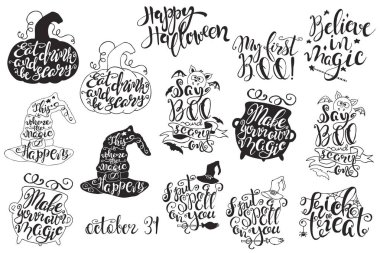 Eat, drink
and be
scary
Eat, drink
and be
scary
Happy
Halloween
My first
BOO!
Believe
in
magic
This is
where
the
magic
Happens
This is
where
the
magic
Happens
Say
BOO
and
scary
on
Make
your own
magic
Say
BOO
and
scary
on
Make
your own
magic
october 31
I put a
spell
on you
I put a
spell
on you
Trick
or
treat